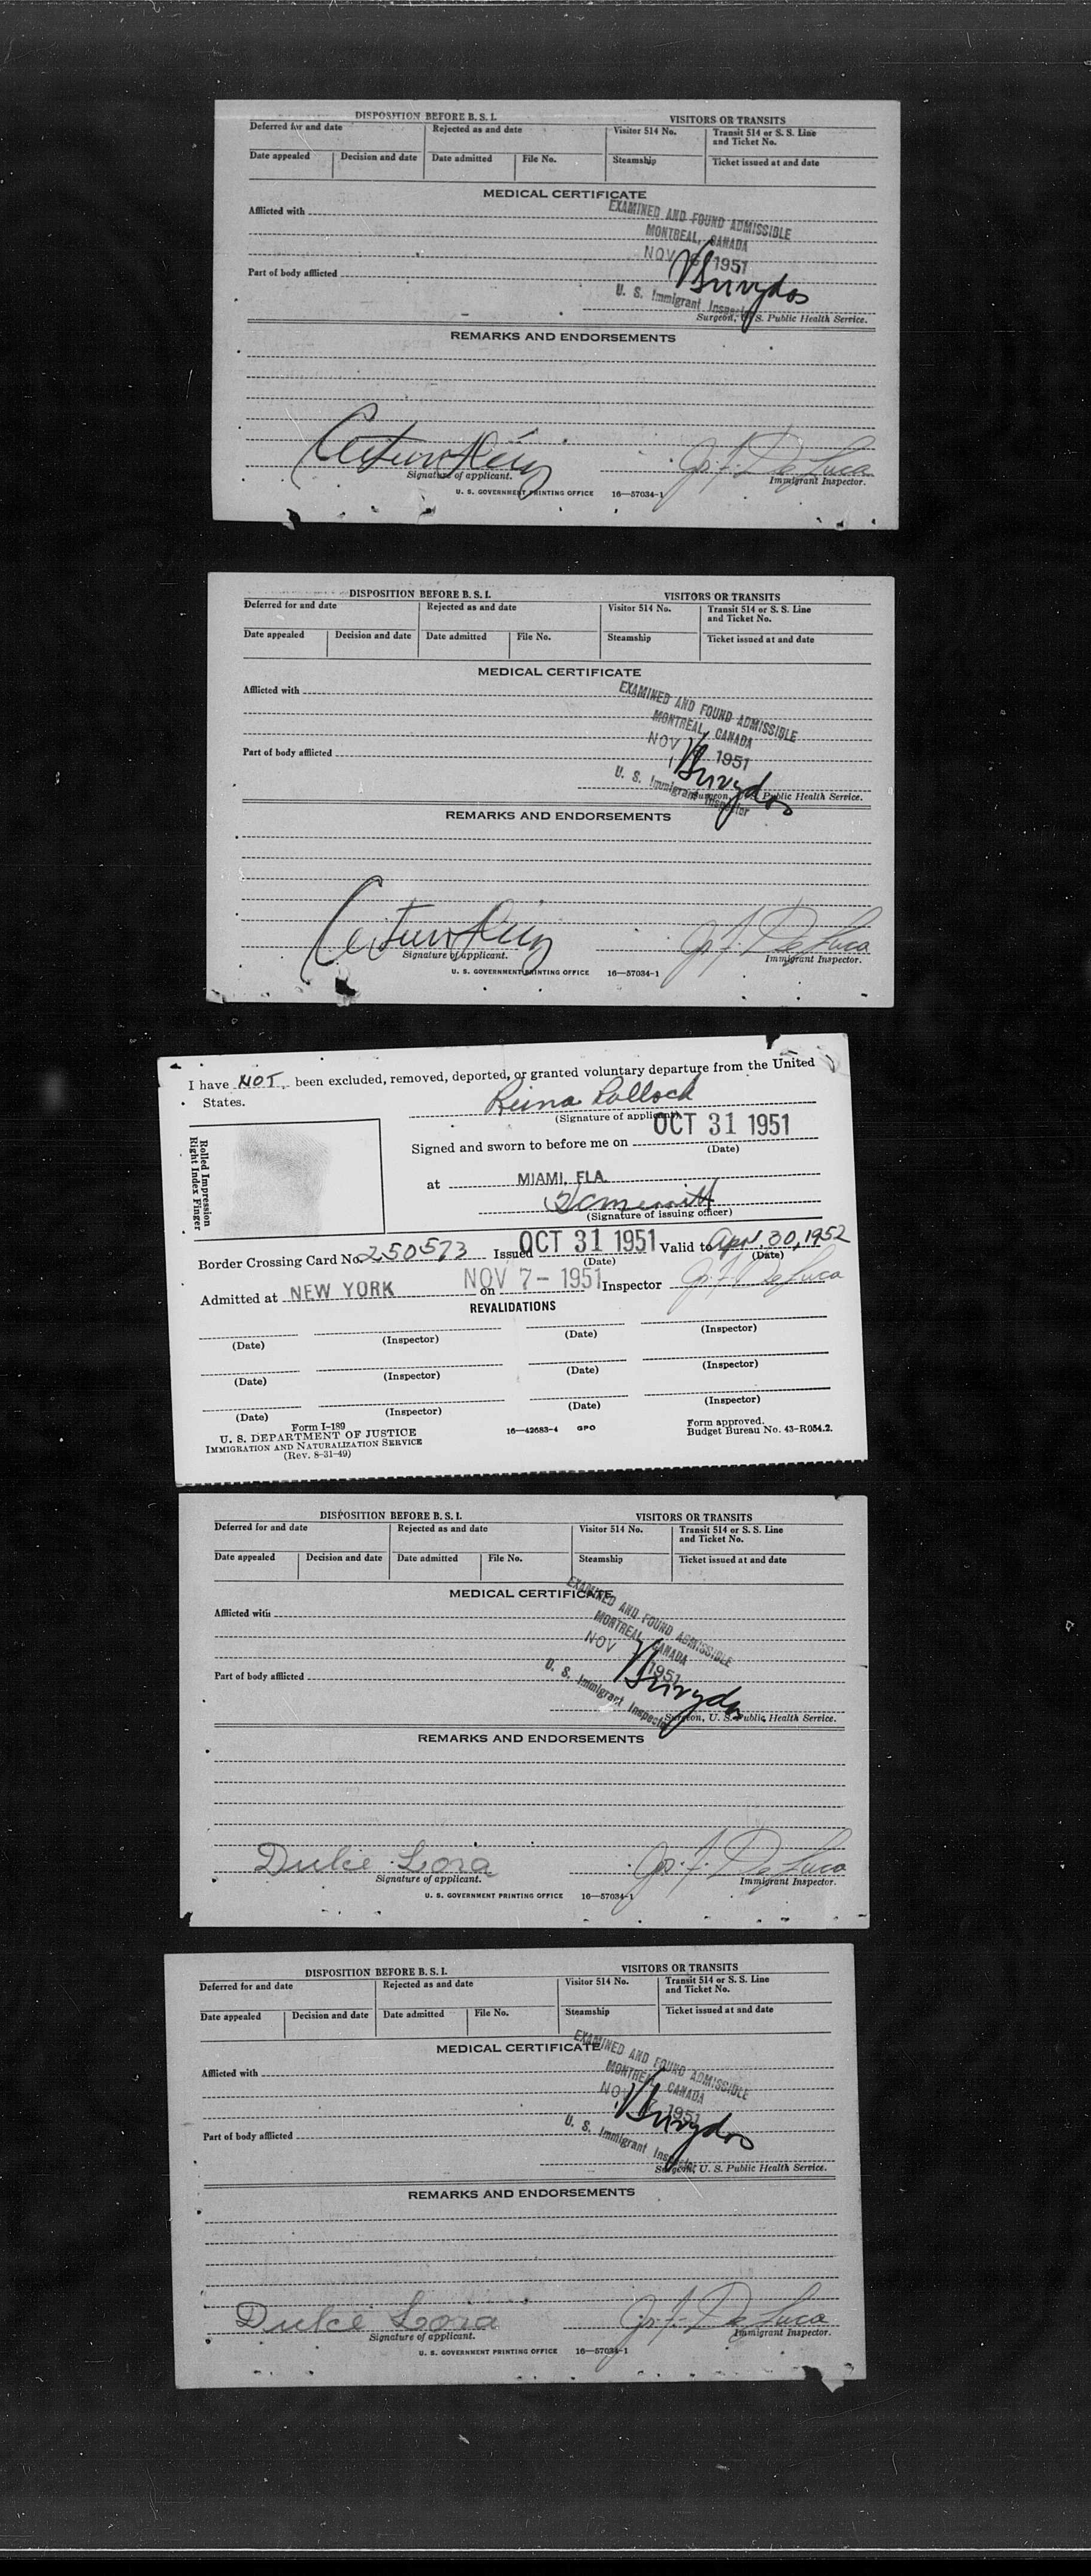 DISPOSITION BEFORE B. S. I. VISITORS OR TRANSITS
Deferred for and date Rejected as and date Visitor 514 No. Transit 514 or S. S. Line and Ticket No.
Date appealed Decision and date Date admitted File No. Steamship Ticket issued at and date
MEDICAL CERTIFICATE
Afflicted with
EXAMINED AND FOUND ADMISSIBLE
MONTREAL, CANADA
NOV 1951
Part of body afflicted
U. S. Immigrant Inspector
Surgeon, U. S. Public Health Service.
REMARKS AND ENDORSEMENTS
Jos. F. De Luca
Signature of applicant. Immigrant Inspector.
U. S. GOVERNMENT PRINTING OFFICE 16—57034-1
DISPOSITION BEFORE B. S. I. VISITORS OR TRANSITS
Deferred for and date Rejected as and date Visitor 514 No. Transit 514 or S. S. Line and Ticket No.
Date appealed Decision and date Date admitted File No. Steamship Ticket issued at and date
MEDICAL CERTIFICATE
Afflicted with
EXAMINED AND FOUND ADMISSIBLE
MONTREAL, CANADA
NOV 1951
Part of body afflicted
U. S. Immigrant Inspector
Surgeon, U. S. Public Health Service.
REMARKS AND ENDORSEMENTS
Jos. F. De Luca
Signature of applicant. Immigrant Inspector.
U. S. GOVERNMENT PRINTING OFFICE 16—57034-1
I have NOT been excluded, removed, deported, or granted voluntary departure from the United
States.
Reina Pollock
(Signature of applicant)
Rolled Impression
Right Index Finger
Signed and sworn to before me on OCT 31 1951
(Date)
at MIAMI, FLA.
(Signature of issuing officer)
Border Crossing Card No. 250573 Issued OCT 31 1951 Valid to Apr. 30, 1952
(Date) (Date)
Admitted at NEW YORK on NOV 7 - 1951 Inspector Jos. F. De Luca
REVALIDATIONS
(Date) (Inspector) (Date) (Inspector)
(Date) (Inspector) (Date) (Inspector)
(Date) (Inspector) (Date) (Inspector)
Form I-189
U. S. DEPARTMENT OF JUSTICE
IMMIGRATION AND NATURALIZATION SERVICE
(Rev. 8-31-49)
16—42683-4 GPO
Form approved.
Budget Bureau No. 43-R054.2.
DISPOSITION BEFORE B. S. I. VISITORS OR TRANSITS
Deferred for and date Rejected as and date Visitor 514 No. Transit 514 or S. S. Line and Ticket No.
Date appealed Decision and date Date admitted File No. Steamship Ticket issued at and date
MEDICAL CERTIFICATE
Afflicted with
EXAMINED AND FOUND ADMISSIBLE
MONTREAL, CANADA
NOV 1951
Part of body afflicted
U. S. Immigrant Inspector
Surgeon, U. S. Public Health Service.
REMARKS AND ENDORSEMENTS
Dulce Lora Jos. F. De Luca
Signature of applicant. Immigrant Inspector.
U. S. GOVERNMENT PRINTING OFFICE 16—57034-1
DISPOSITION BEFORE B. S. I. VISITORS OR TRANSITS
Deferred for and date Rejected as and date Visitor 514 No. Transit 514 or S. S. Line and Ticket No.
Date appealed Decision and date Date admitted File No. Steamship Ticket issued at and date
MEDICAL CERTIFICATE
Afflicted with
EXAMINED AND FOUND ADMISSIBLE
MONTREAL, CANADA
NOV 1951
Part of body afflicted
U. S. Immigrant Inspector
Surgeon, U. S. Public Health Service.
REMARKS AND ENDORSEMENTS
Dulce Lora Jos. F. De Luca
Signature of applicant. Immigrant Inspector.
U. S. GOVERNMENT PRINTING OFFICE 16—57034-1